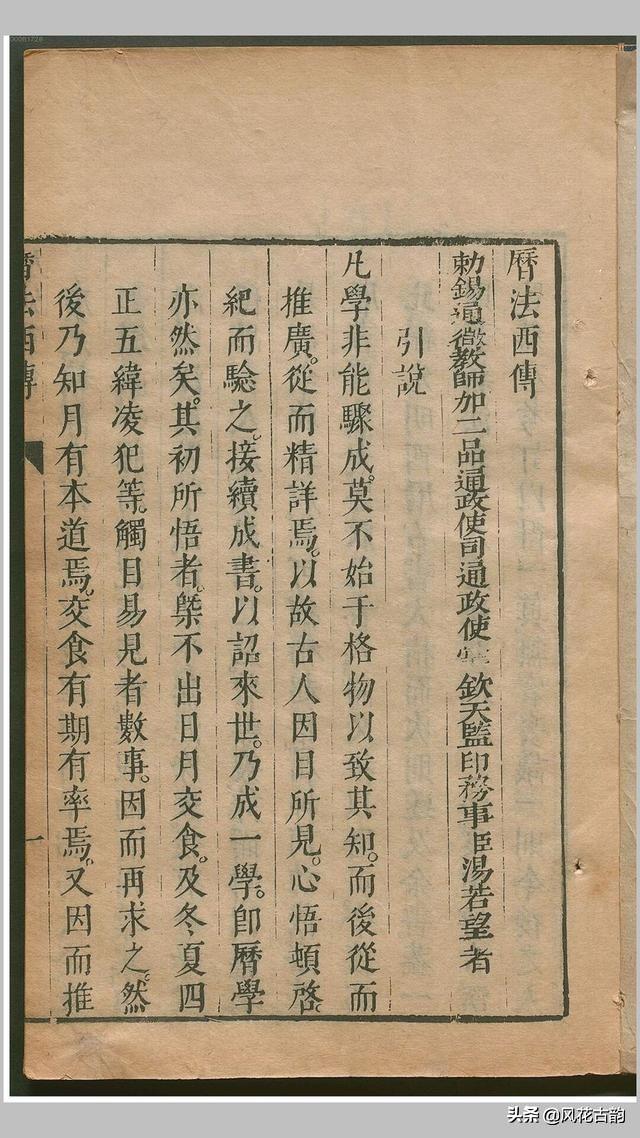 曆法西傳
勅錫通微教師加二品通政使司通政使掌欽天監印務事臣湯若望著
引說
凡學非能驟成。莫不始于格物以致其知。而後從而
推廣。從而精詳焉。以故古人因目所見。心悟頓啓。
紀而驗之。接續成書。以詔來世。乃成一學。卽曆學
亦然矣。其初所悟者。槩不出日月交食。及冬夏四
正五緯凌犯等。觸目易見者數事。因而再求之。然
後乃知月有本道焉。交食有期有率焉。又因而推
曆法西傳
一
头条 @风花古韵